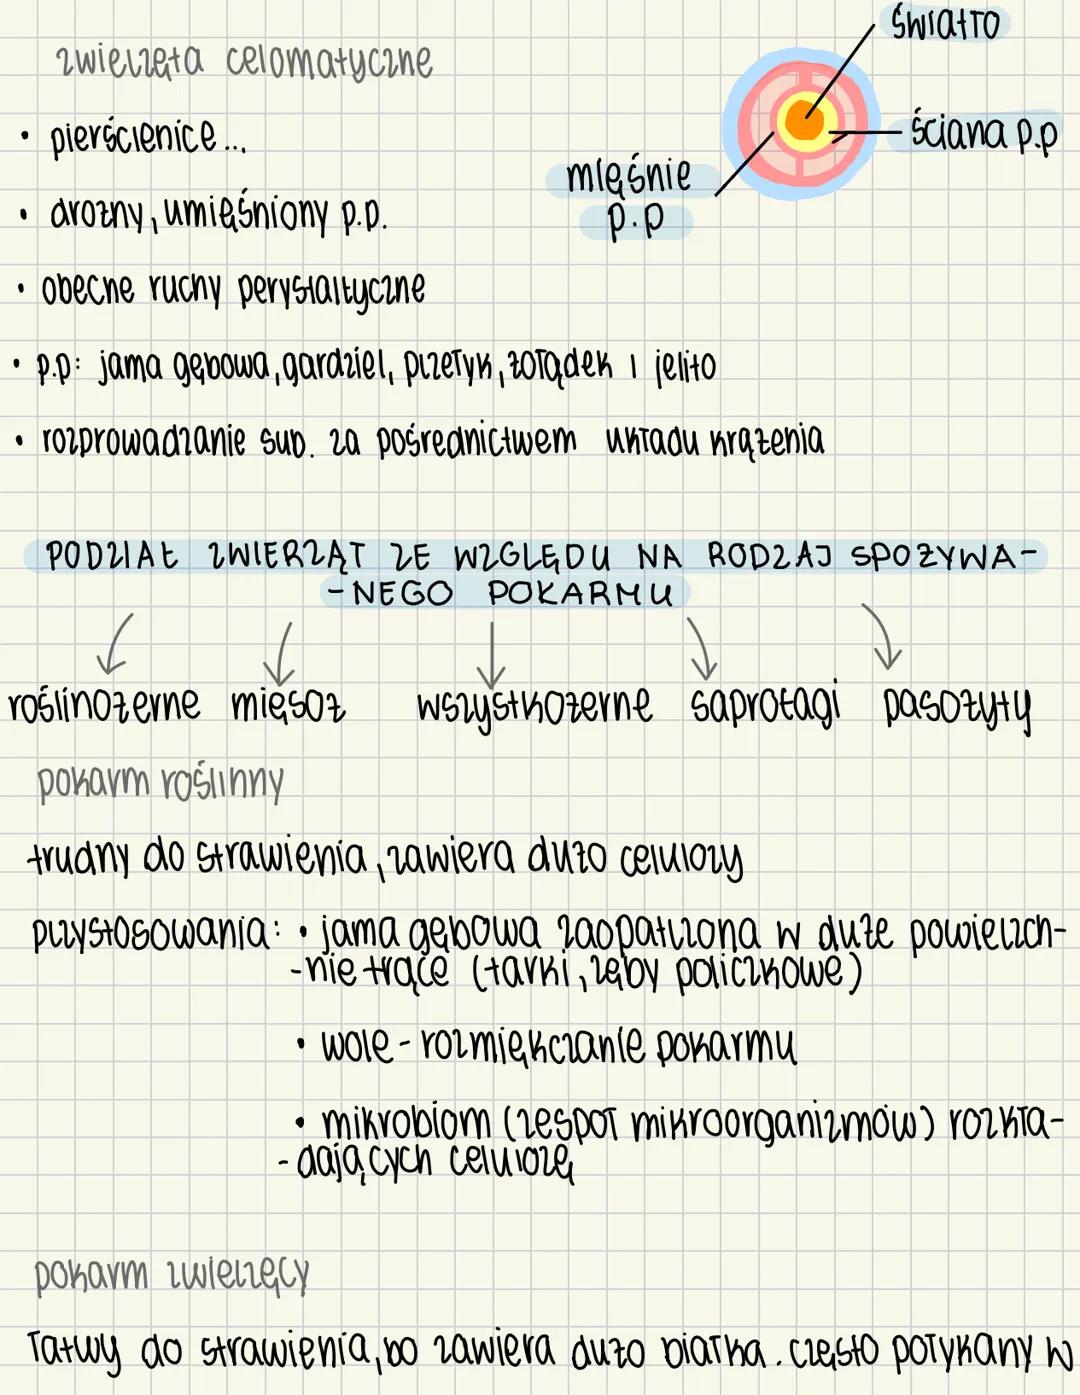 światło
zwierzęta celomatyczne
• pierścienice...
ściana p.p
mięśnie
p.p
• drożny, umięśniony p.p.
• obecne ruchy perystaltyczne
• p.p: jama gębowa, gardziel, przełyk, żołądek i jelito
• rozprowadzanie sub. za pośrednictwem układu krążenia
PODZIAŁ ZWIERZĄT ZE WZGLĘDU NA RODZAJ SPOŻYWA-
-NEGO POKARMU
roślinożerne mięsoż wszystkożerne saprofagi pasożyty
pokarm roślinny
trudny do strawienia, zawiera dużo celulozy
przystosowania: • jama gębowa zaopatrzona w duże powierzch-
-nie trące (tarki, zęby policzkowe)
• wole - rozmiękczanie pokarmu
• mikrobiom (zespół mikroorganizmów) rozkła-
-dających celulozę
pokarm zwierzęcy
łatwy do strawienia, bo zawiera dużo białka. często połykany w